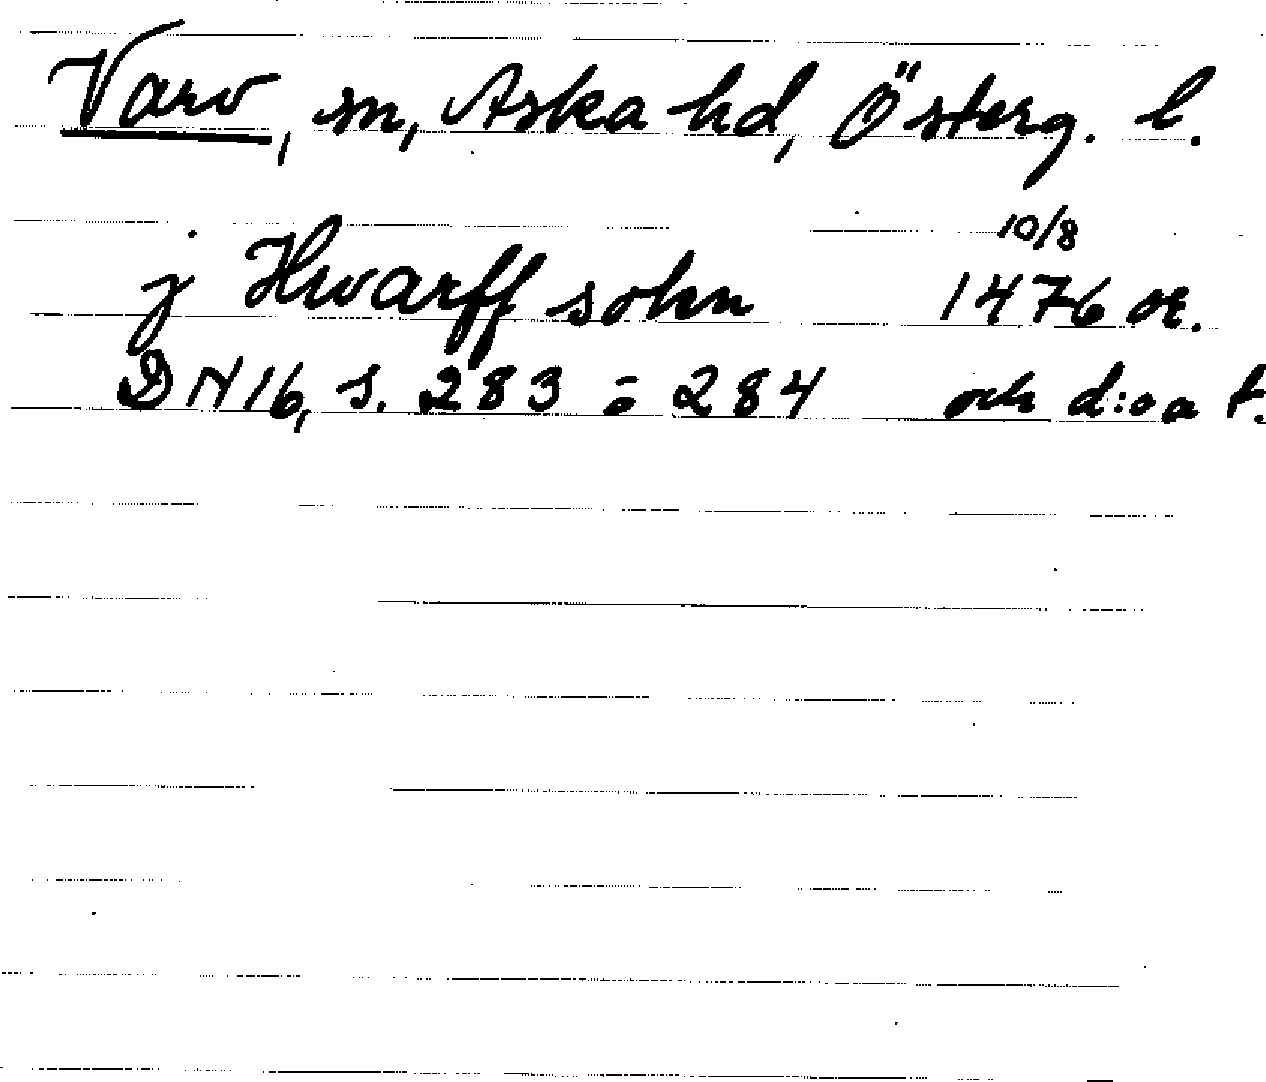 Varv, sn, Aska hd, Österg. l.
j Hwarff sokn 10/8 1476 or.
DN 16, s. 283 - 284 och d:o a t.